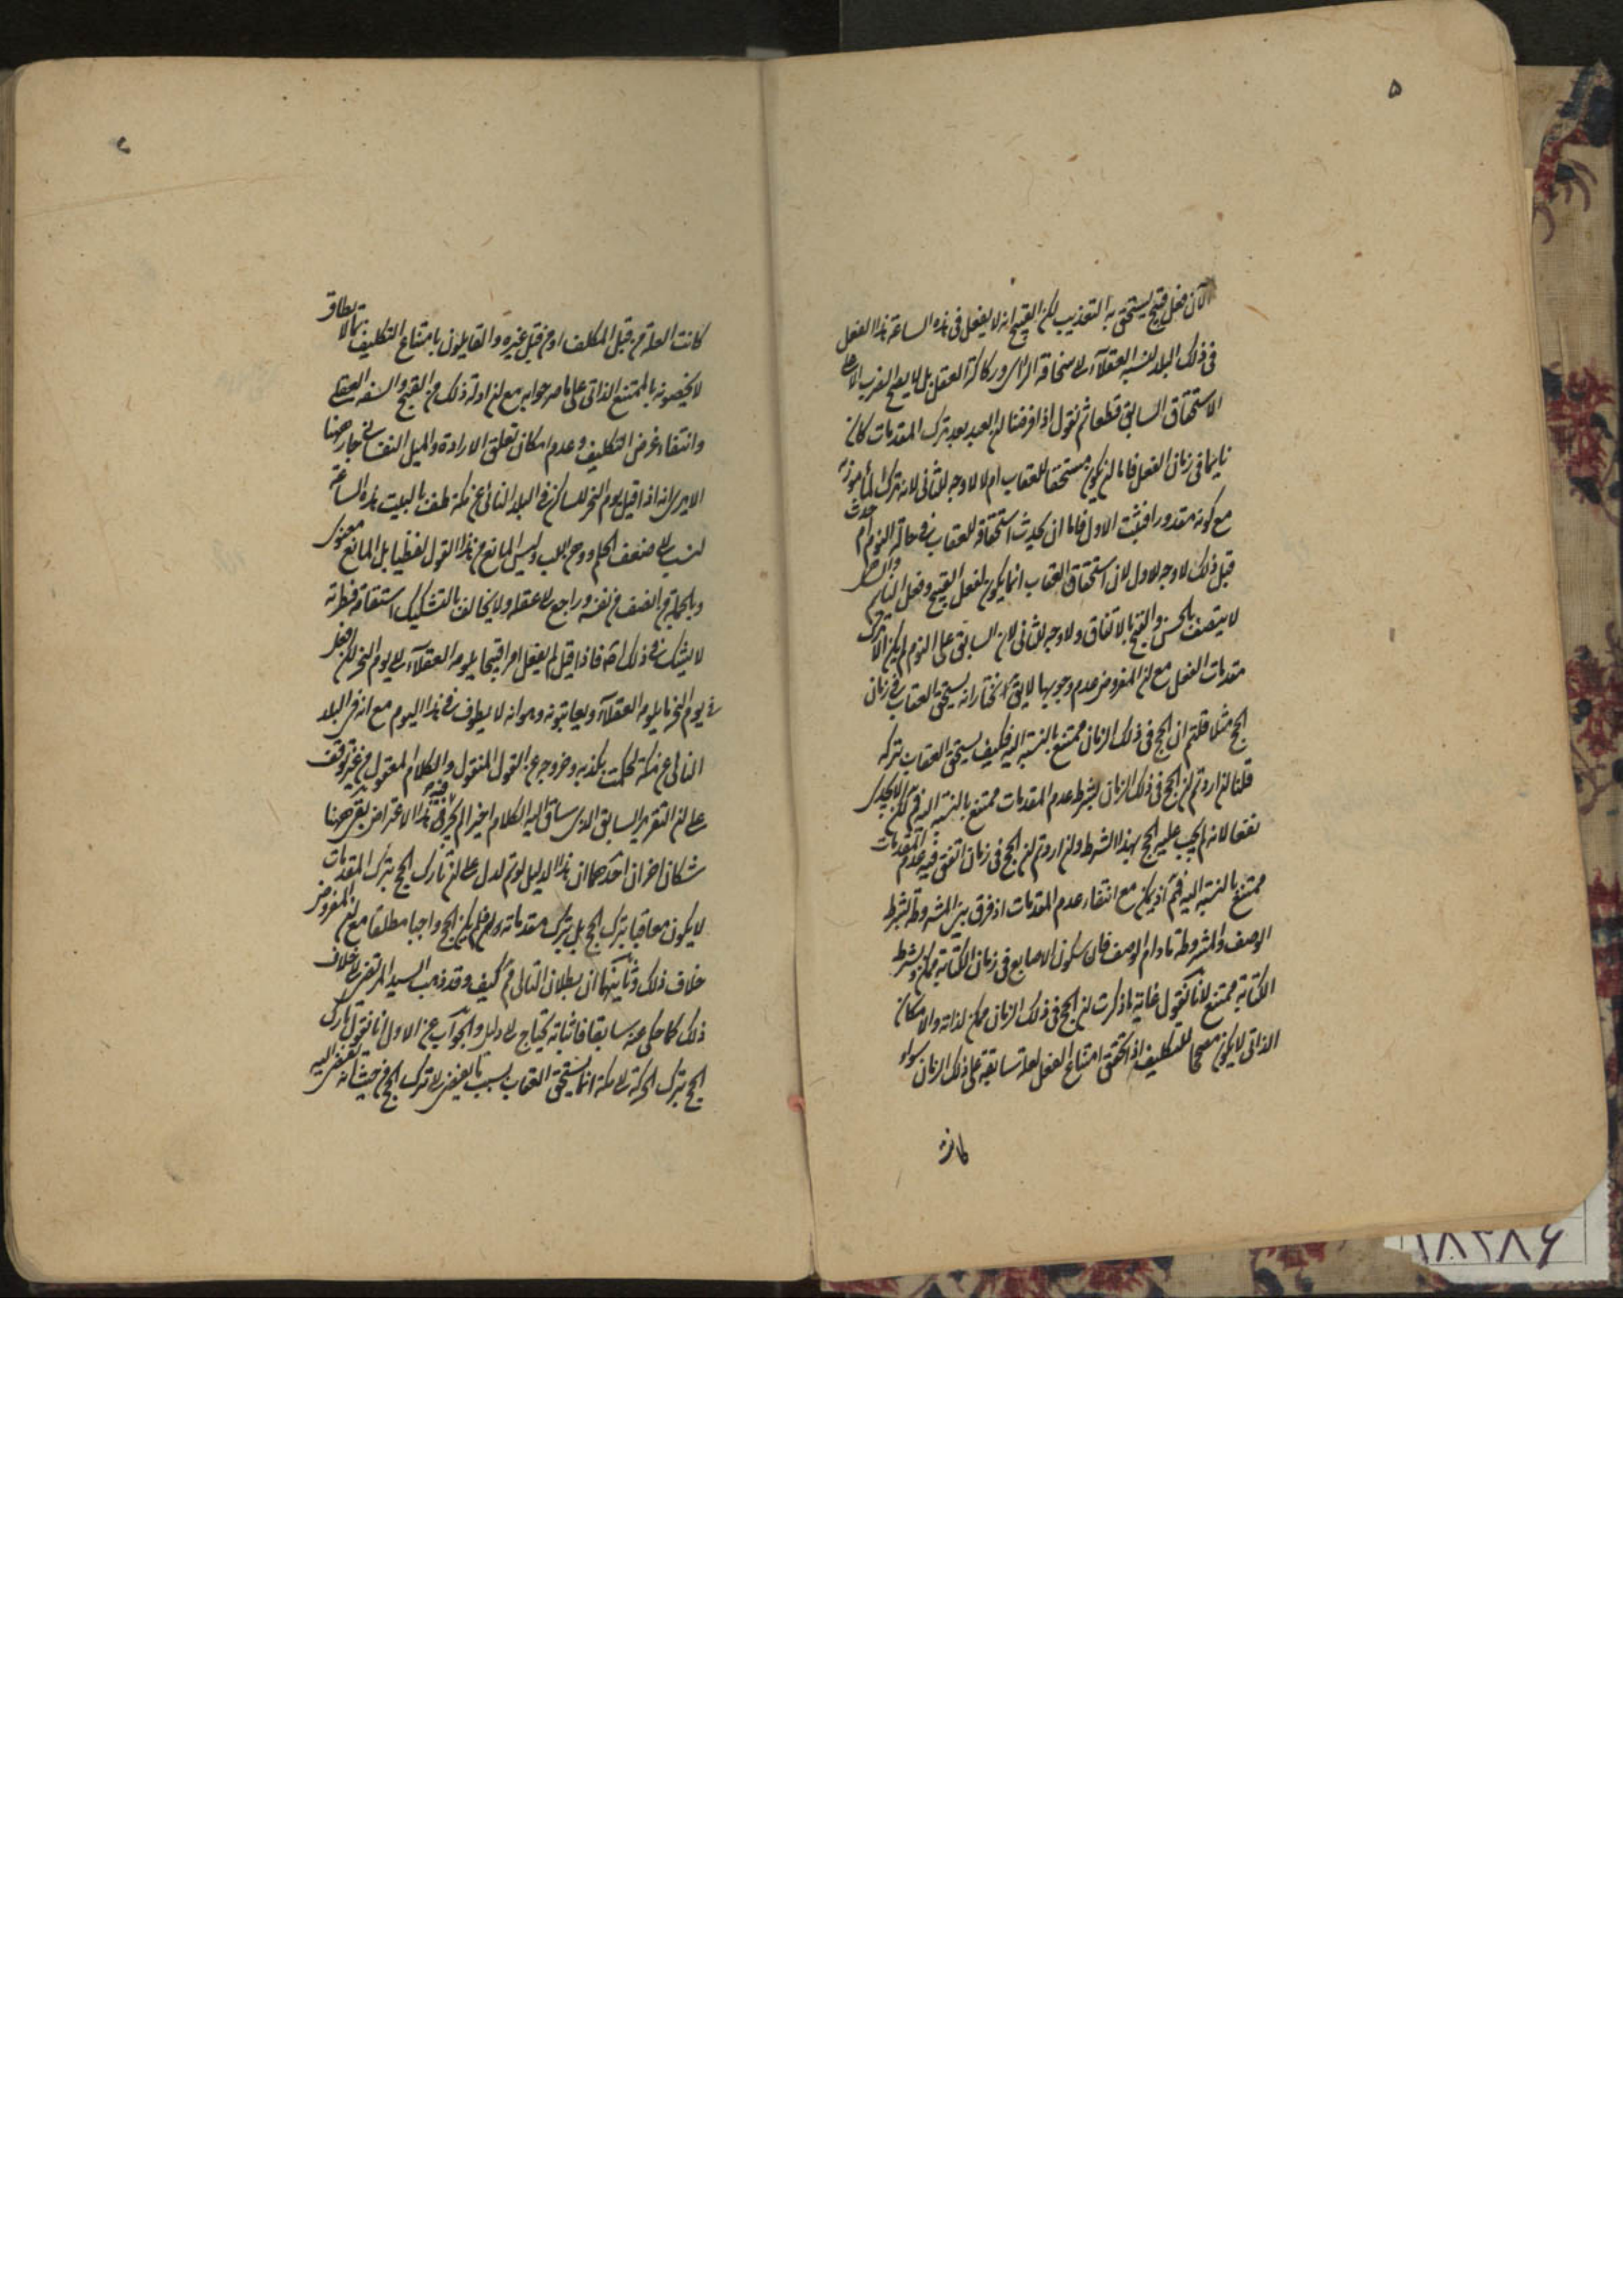 ۵
الآن فعل قبيح يستحق به التعذيب لكن القبيح انه لا يفعل فى هذه الساعة هذا الفعل
فى ذلك البلد لنسبه العقلآء الى سخافة الراى وركاكة العقل بل لا يصح الضرب الا على
الاستحقاق السابق قطعا ثم نقول اذا فرضنا ان العبد بعد ترك المقدمات كان
نايما فى زمان الفعل فاما ان يكون مستحقا للعقاب ام لا لا وجه للثانى لانه ترك المأمور به
مع كونه مقدورا فثبت الاول فاما ان يحدث استحقاقه للعقاب فى حالة النوم او حدث
قبل ذلك لا وجه للاول لان استحقاق العقاب انما يكون لفعل القبيح وفعل النايم
لا يتصف بالحسن والقبح بالاتفاق ولا وجه للثانى لان السابق على النوم لم يكن الا ترك
مقدمات الفعل مع ان المفروض عدم وجوبها لا يق نختار انه يستحق العقاب فى زمان
الحج مثلا قلتم ان الحج فى ذلك الزمان ممتنع بالنسبة اليه فكيف يستحق العقاب بتركه
قلنا ان اردتم ان الحج فى ذلك الزمان بشرط عدم المقدمات ممتنع بالنسبة اليه فم لكن لا يجدى
نفعا لانه لم يجب عليه الحج بهذا الشرط وان اردتم ان الحج فى زمان اتفق فيه عدم المقدمات
ممتنع بالنسبة اليه فمم اذ يمكن مع انتفاء عدم المقدمات اذ فرق بين المشروطة بشرط
الوصف والمشروطة مادام الوصف فان سكون الاصابع فى زمان الكتابة ممكن وبشرط
الكتابة ممتنع لانا نقول غاية ما ذكرت ان الحج فى ذلك الزمان ممكن لذاته والامكان
الذاتى لا يكون مصححا للتكليف اذا تحقق امتناع الفعل لعلة سابقة على ذلك الزمان سواء
كانت
كانت العلة من قبل المكلف او من قبل غيره والقايلون بامتناع التكليف بما لا يطاق
لا يخصونه بالممتنع الذاتى على ما صرحوا به مع ان ادلة ذلك من القبح والسفه العقلى
وانتفاء غرض التكليف وعدم امكان تعلق الارادة والميل النفسانى جار ههنا
الا يرى انه اذا قيل يوم النحر للساكن فى البلد النائى عن مكة طف بالبيت هذه الساعة
لنسب الى ضعف الحلم ... وليس المانع من هذا القول لفظيا بل المانع معنوى
وبالجملة من انصف من نفسه وراجع الى عقله ولا يخالف بالتشكيك استقامة فطرته
لا يشك فى ذلك اصلا فاذا قيل لم يفعل امرا قبيحا يلومه العقلآء الى يوم النحر لكن فعل
فى يوم النحر ما يلومه العقلآء ويعاتبونه وهو انه لا يطوف فى هذا اليوم مع انه فى البلد
النائى عن مكة لحكمت بكذبه وخروجه عن القول المنقول والكلام المعقول من غير توقف
على ان التقرير السابق الذى ساق اليه الكلام اخيرا لم يجر فيه هذا الاعتراض بقى ههنا
شكان اخران احدهما ان هذا الدليل لو تم لدل على ان تارك الحج بترك المقدمات
لا يكون معاقبا بترك الحج بل بترك مقدماته و... فلم يكن الحج واجبا مطلقا مع ان المفروض
خلاف ذلك وثانيهما ان بطلان التالى مم كيف وقد ذهب السيد المرتضى الى خلاف
ذلك كما حكى عنه سابقا فاثباته يحتاج الى دليل والجواب عن الاول انا نقول تارك
الحج بترك الحركة الى مكة انما يستحق العقاب بسبب ما يفضى الى ترك الحج من حيث انه يفضى اليه
۱۸۲۸۶